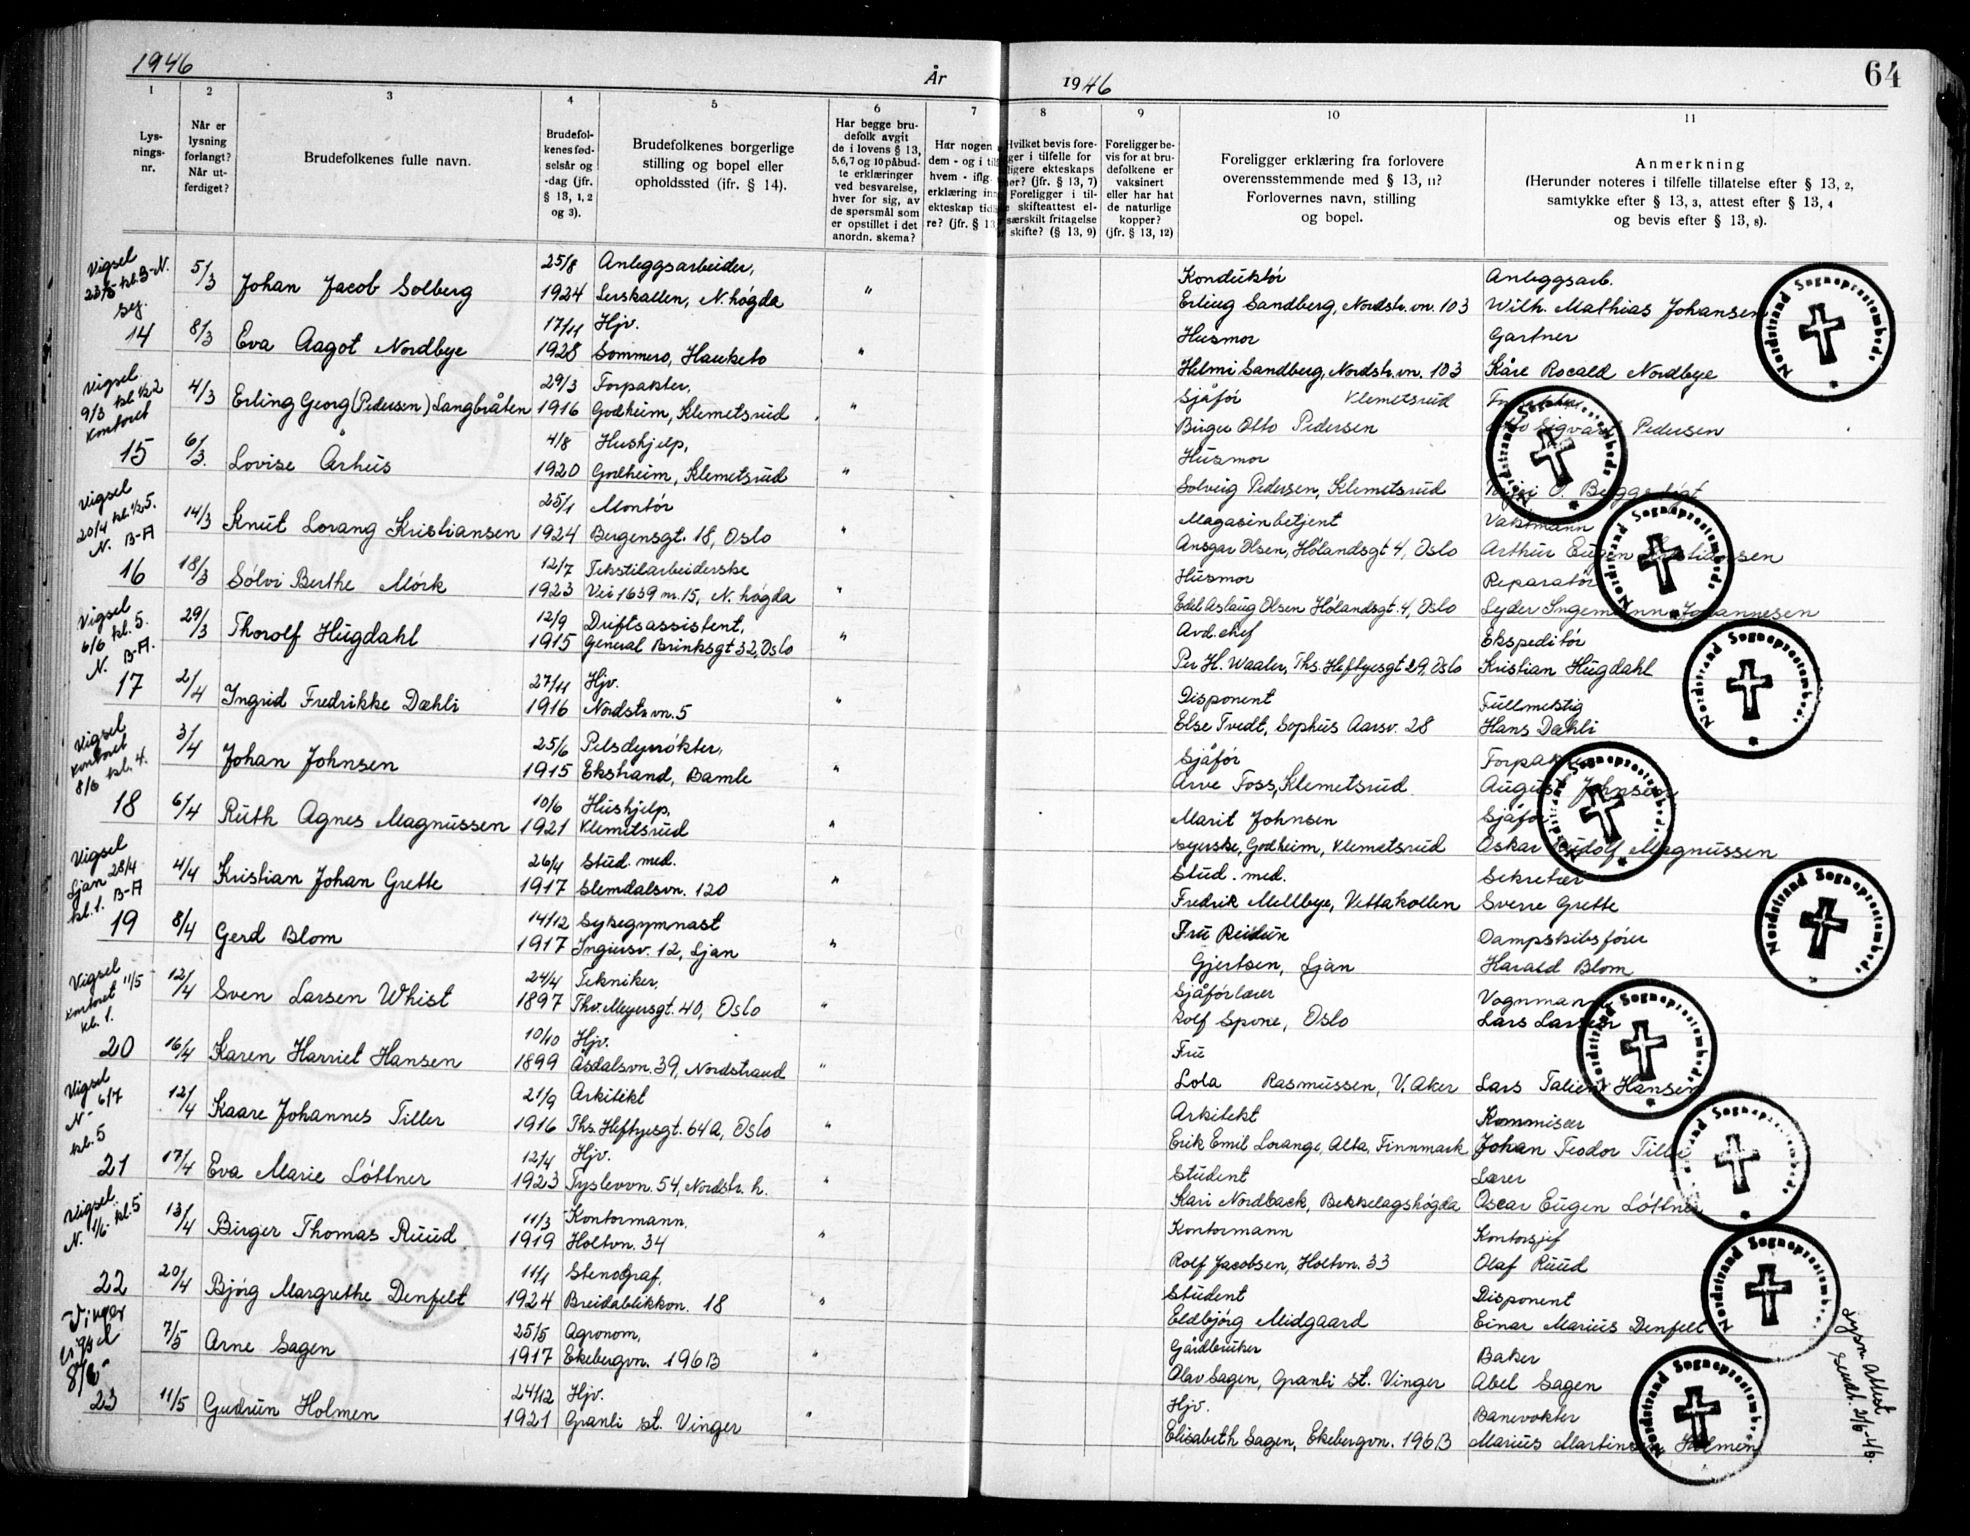 1946 År 1946 64
1 2 3 4 5 6 7 8 9 10 11
Lys-
nings-
nr.
Når er
lysning
forlangt?
Når ut-
ferdiget?
Brudefolkenes fulle navn.
Brudefol-
kenes fød-
selsår og
-dag (jfr.
§ 13, 1, 2
og 3).
Brudefolkenes borgerlige
stilling og bopel eller
opholdssted (ifr. § 14).
Har begge bru-
defolk avgit
de i lovens § 13,
5,6,7 og 10 påbud-
te erklæringer
ved besvarelse,
hver for sig, av
de spørsmål som
er opstillet i det
anordn. skema?
Har nogen
dem - og i til
hvem - iflg.
erklæring inn
ekteskap tid
re? (jfr. § 13,
Hvilket bevis fore-
ger i tilfelle for
ligere ekteskaps
hør? (jfr. § 13, 7)
Foreligger i til-
skifteattest el-
særskilt fritagelse
skifte? (§ 13, 9)
Foreligger be-
vis for at bru-
defolkene er
vaksinert
eller har hat
de naturlige
kopper?
(jfr. § 13, 12)
Foreligger erklæring fra forlovere
overensstemmende med § 13, 11?
Forlovernes navn, stilling
og bopel.
Anmerkning
(Herunder noteres i tilfelle tillatelse efter § 13, 2,
samtykke efter § 13, 3, attest efter § 13, 4
og bevis efter § 13, 8).
Vigsel
5/3 Johan Jacob Solberg 25/8 Anleggsarbeider, Konduktór Anleggsarb.
1924 Serskallen, N.høgda " Erling Sandberg, Nordstr.vn. 103 Wilh. Mathias Johansen
14 8/3 Eva Aagot Nordbye 17/11 Hjv. Husmor Gartner
1928 Sommero, Hauketo " Helmi Sandberg, Nordstr.vn. 103 Kåre Rocald Nordbye
Vigsel
9/3 kl. 1/2 2
Kontoret
4/3 Erling Georg (Pedersen) Langbråten 29/3 Forpakter, Sjåfór Klemetsrud
1916 Godheim, Klemetsrud " Birger Otto Pedersen Sigvart Pedersen
15 6/3. Lovise Århus 4/8 Hushjelp, Husmor
1920 Godheim, Klemetsrud " Solveig Pedersen, Klemetsrud
Vigsel
20/4 kl. 1/2 5.
N. B-A
14/3 Knut Lorang Kristiansen 25/1 Montór Magasinbetjent Vaktmann
1924 Bergensgt. 18, Oslo " Ansgar Olsen, Hólandsgt 4, Oslo Arthur Eugen Kristiansen
16 18/3 Sólvi Berthe Mórk 12/7 Tekstilarbeiderske Husmor Reparatór
1923 Vei 1659 nr. 15, N. høgda " Edel Aslaug Olsen Hólandsgt. 4, Oslo Leyder Ingemann Johannesen
Vigsel
6/6 kl. 5.
N. B-A.
29/3 Thorolf Hugdahl 12/9 Driftsassistent, Avd. chef Ekspeditór
1915 General Birchsgt 32, Oslo " Per H. Waaler, Ths. Heftyesgt 29, Oslo Kristian Hugdahl
17 2/4 Ingrid Fredrikke Dæhli 27/11 Hjv. Disponent Fullmektig
1916 Nordstr.vn. 5 " Else Tvedt, Sophus Aarsv. 28 Hans Dæhli
Vigsel
Kontoret
8/6 kl. 4.
3/4 Johan Johnsen 25/6 Pelsdyrrókter, Sjåfór Forpakter
1915 Ekstrand, Bamle " Arve Foss, Klemetsrud August Johnsen
18 6/4 Ruth Agnes Magnussen 10/6 Hushjelp, Marit Johnsen Sjåfór
1921 Klemetsrud " syerske, Godheim, Klemetsrud Oskar Rudolf Magnussen
Vigsel
Ljan 28/4
kl. 1. B-A
4/4 Kristian Johan Grette 26/4 Stud. med. Stud. med. Sekretær
1917 Slemdalsvn. 120 " Fredrik Mellbye, Vettakollen Sverre Grette
19 8/4 Gerd Blom 14/12 Sykegymnast Fru Reidun Dampskibsfórer
1917 Ingiersv. 12, Ljan " Gjertsen, Ljan Harald Blom
Vigsel
Kontoret 11/5
kl. 1.
12/4 Sven Larsen Whist 24/4 Tekniker, Sjåfórlærer Vognmann
1897 Thv. Meyersgt. 40, Oslo " Rolf Spone, Oslo Lars Larsen
20 16/4 Karen Harriet Hansen 10/10 Hjv. Fru
1899 Åsdalsvn. 39, Nordstrand " Lola Rasmussen, V. Aker Lars Hansen
Vigsel
N- 6/7
kl. 5
12/4 Kaare Johannes Tiller 21/9 Arkitekt Arkitekt Kommisær
1916 Ths. Heftyesgt. 64A, Oslo " Erik Emil Lorange, Alta, Finnmark Johan Teodor Tiller
21 17/4 Eva Marie Lóttner 12/4 Hjv. Student Lærer
1923 Tyslevvn. 54, Nordstr. h. " Kari Nordback, Bekkelagshógda Oscar Eugen Lóttner
Vigsel
N. 1/6- kl. 5
13/4 Birger Thomas Ruud 11/3 Kontormann, Kontormann Kontorsjef
1919 Holtvn. 34 " Rolf Jacobsen, Holtvn. 33 Olaf Ruud
22 20/4 Bjórg Margrethe Denfelt 11/1 Stenograf, Student Disponent
1924 Breidablikkvn. 18 " Eldbjórg Midgaard Einar Marius Denfelt
Vinger
Vigsel
8/6
7/5 Arne Sagen 25/5 Agronom, Gårdbruker Baker
1917 Ekebergvn. 196B " Olav Sagen, Granli st. Vinger Abel Sagen
23 11/5 Gudrun Holmen 24/12 Hjv. Hjv. Banevokter
1921 Granli st. Vinger " Elisabeth Sagen, Ekebergvn. 196B Marius Martinsen Holmen
Lysn. Attest
sendt. 21/5-46.
Nordstrand Sogneprestembede
Nordstrand Sogneprestembede
Nordstrand Sogneprestembede
Nordstrand Sogneprestembede
Nordstrand Sogneprestembede
Nordstrand Sogneprestembede
Nordstrand Sogneprestembede
Nordstrand Sogneprestembede
Nordstrand Sogneprestembede
Nordstrand Sogneprestembede